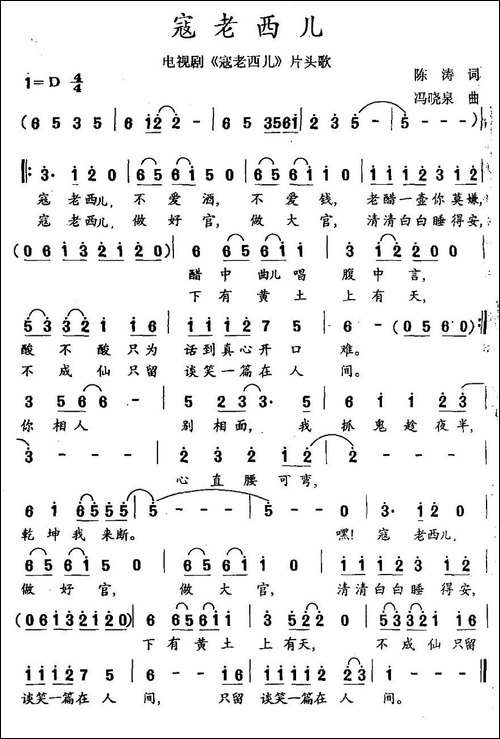 寇老西儿
电视剧《寇老西儿》片头歌
1=D 4/4
陈涛 词
冯晓泉 曲
(6 5 3 5 | 6 12 2 - | 6 5 6 3561 | 5 - - - | 5 - - -)
3· 1 2 0 | 6 5 6 5 1 0 | 6 5 6 5 1 0 | 1 1 1 2 3 1 2
寇 老西儿, 不爱酒, 不爱钱, 老醋一壶你莫嫌,
寇 老西儿, 做好官, 做大官, 清清白白睡得安,
(0 6 1 3 2 1 2 0) | 6 6 5 6 1 1 | 3 1 2 2 0 0
醋中曲儿唱 腹中言,
下有黄土 上有天,
5 3 3 2 1 1 6 | 1 1 1 1 2 7 5 | 6 - (0 5 6 0)
酸不酸只为 话到真心开口 难。
不成仙只留 谈笑一篇在人 间。
3 5 6 6 - | 5 2 3 3· 5 | 6 6 1 2 3
你相人 别相面, 我 抓鬼趁夜半,
3 - - - | 2 2 3 2 1 2 | 2 - - -
心直腰可弯,
6 1 6 5 5 5 | 5 - - - | 5 - - 0 | 3· 1 2 0
乾坤我来断。 嘿! 寇 老西儿,
6 5 6 5 1 0 | 6 5 6 5 1 0 | 1 1 1 2 3 1 2
做好官, 做大官, 清清白白睡得安,
(0 6 1 3 2 1 2 0) | 6 6 5 6 1 1 | 3 1 2 2 | 5 3 3 2 1 1 6
下有黄土 上有天, 不成仙只留
1 1 1 1 2 7 5 | 6 - - 1 6 | 1 1 1 1 2 7 5 | 6 - - -
谈笑一篇在人 间, 只留 谈笑一篇在人 间。